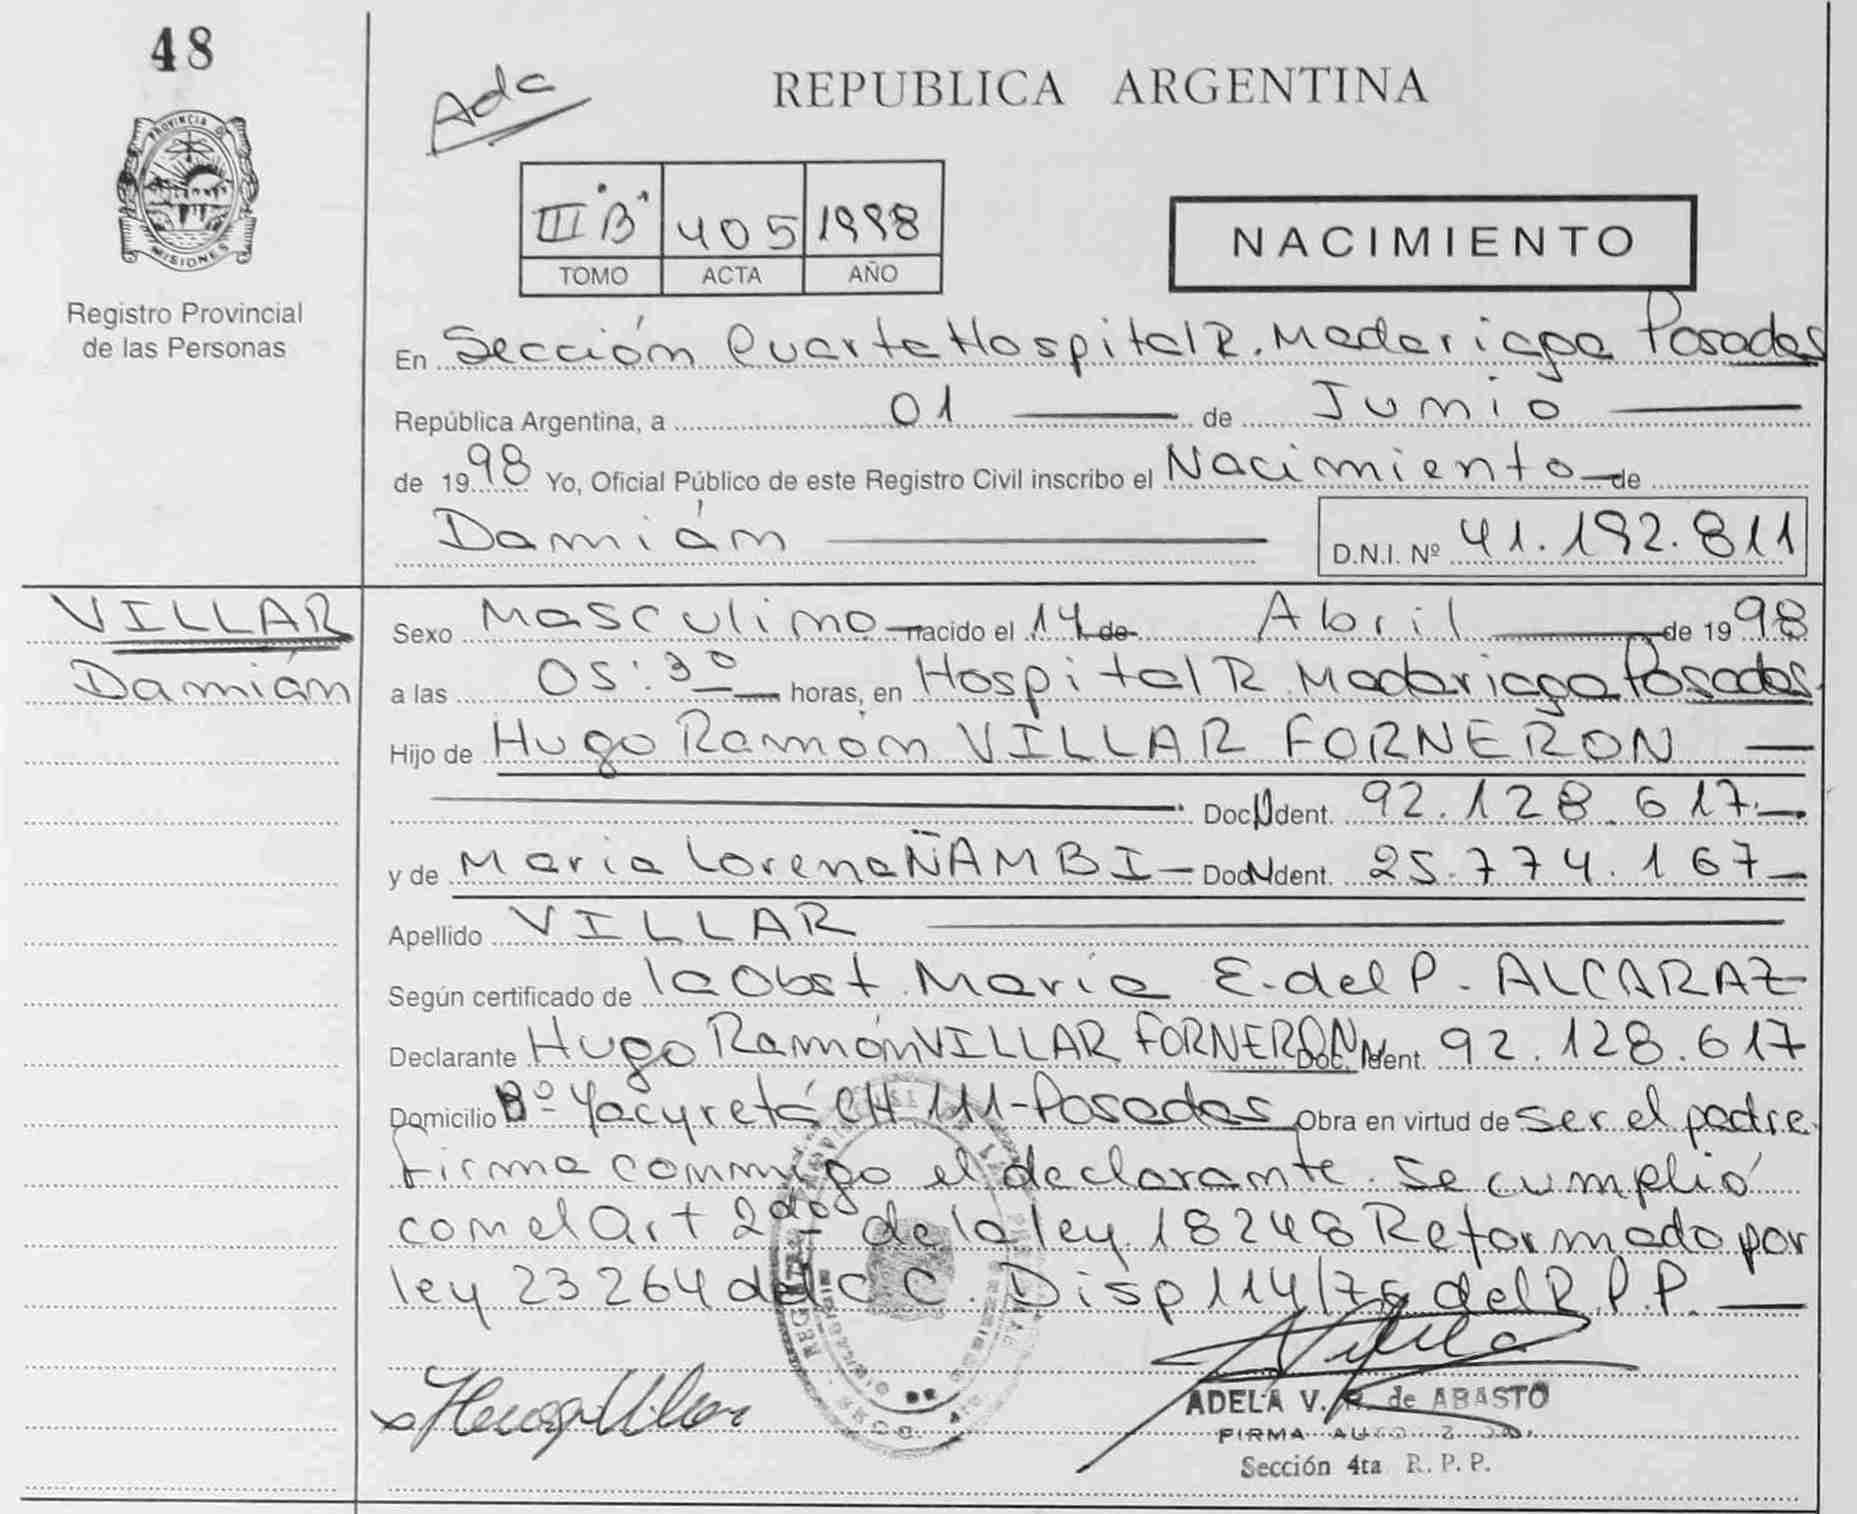 48
Ada
REPUBLICA ARGENTINA
PROVINCIA DE
MISIONES
Registro Provincial
de las Personas
III "B" 405 1998
TOMO ACTA AÑO
NACIMIENTO
En Sección Cuarta Hospital R. Madariaga Posadas
República Argentina, a 01 de Junio
de 1998 Yo, Oficial Público de este Registro Civil inscribo el Nacimiento de
Damián D.N.I. Nº 41.192.811
VILLAR
Damián
Sexo Masculino nacido el 14 de Abril de 1998
a las 05:30 horas, en Hospital R. Madariaga Posadas.
Hijo de Hugo Ramón VILLAR FORNERON
Doc. Ident. 92.128.617.
y de Maria Lorena ÑAMBI Doc. Ident. 25.774.167
Apellido VILLAR
Según certificado de la Obst. Maria E. del P. ALCARAZ
Declarante Hugo Ramón VILLAR FORNERON Doc. Ident. 92.128.617
Domicilio Bº Yacyretá CH 111-Posadas Obra en virtud de ser el padre.
Firma conmigo el declarante. Se cumplió
con el Art 2do de la ley 18248 Reformado por
ley 23264 del C C. Disp 114/76 del R.P.P.
ADELA V. R. de ABASTO
FIRMA
Sección 4ta R. P. P.